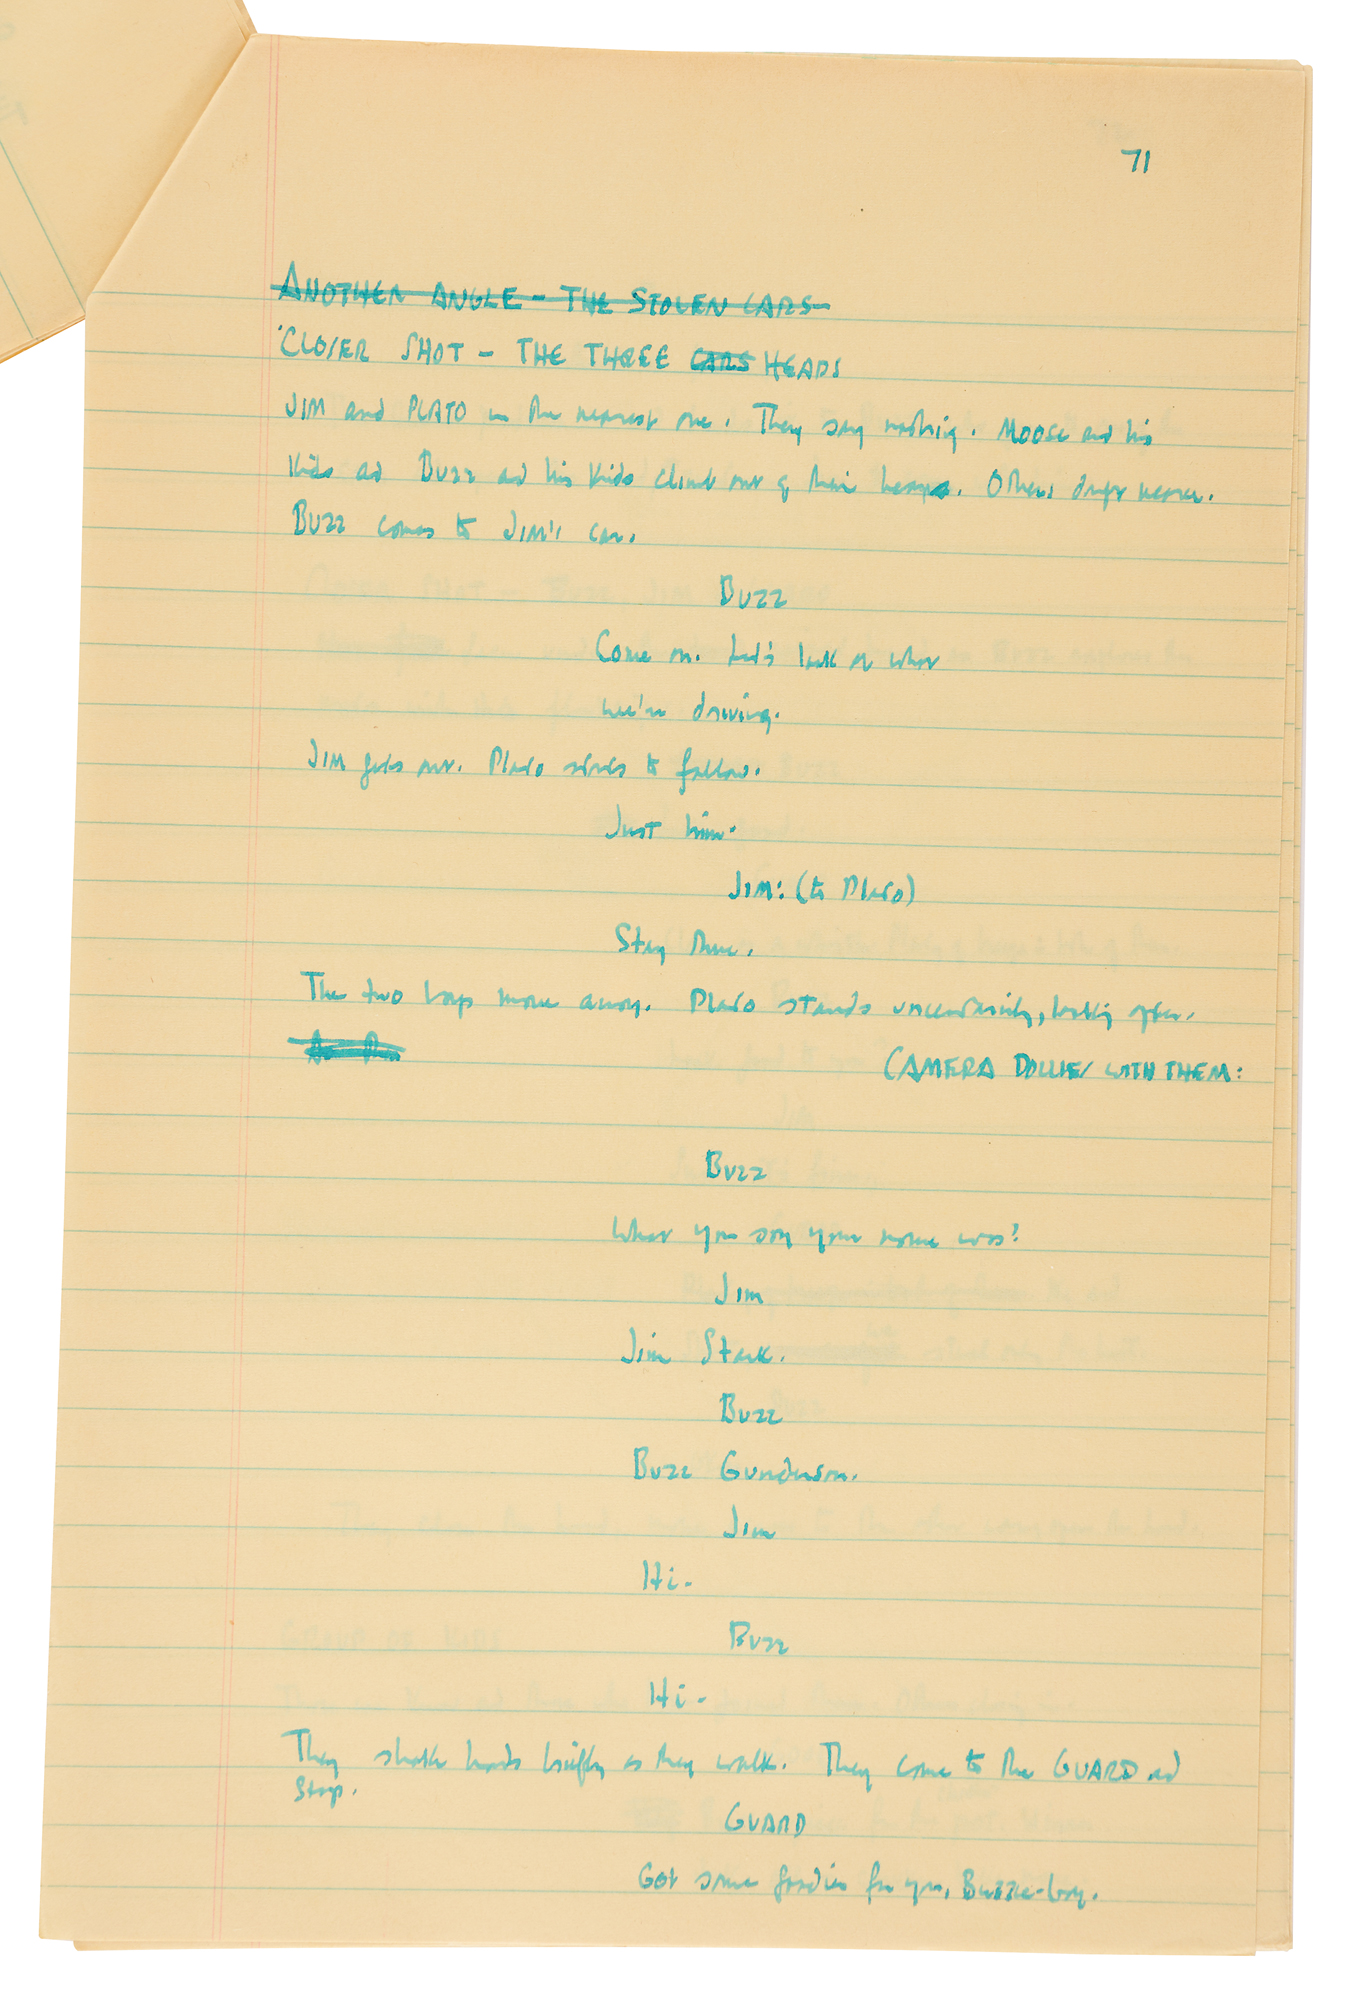 71
ANOTHER ANGLE - THE STOLEN CARS -
CLOSER SHOT - THE THREE CARS HEADS
JIM and PLATO in the nearest one. They say nothing. MOOSE and his
kids and BUZZ and his kids climb out of their heaps. Others drift nearer.
BUZZ comes to JIM's car.
BUZZ
Come on. Let's look at what
we're driving.
JIM gets out. Plato starts to follow.
Just him.
JIM: (to Plato)
Stay there.
The two boys move away. Plato stands uncertainly, looking after.
CAMERA DOLLIES WITH THEM:
BUZZ
What you say your name was?
Jim
Jim Stark.
Buzz
Buzz Gunderson.
Jim
Hi.
Buzz
Hi.
They shake hands briefly as they walk. They come to the GUARD and
stop.
GUARD
Got some goodies for you, Buzzie-boy.